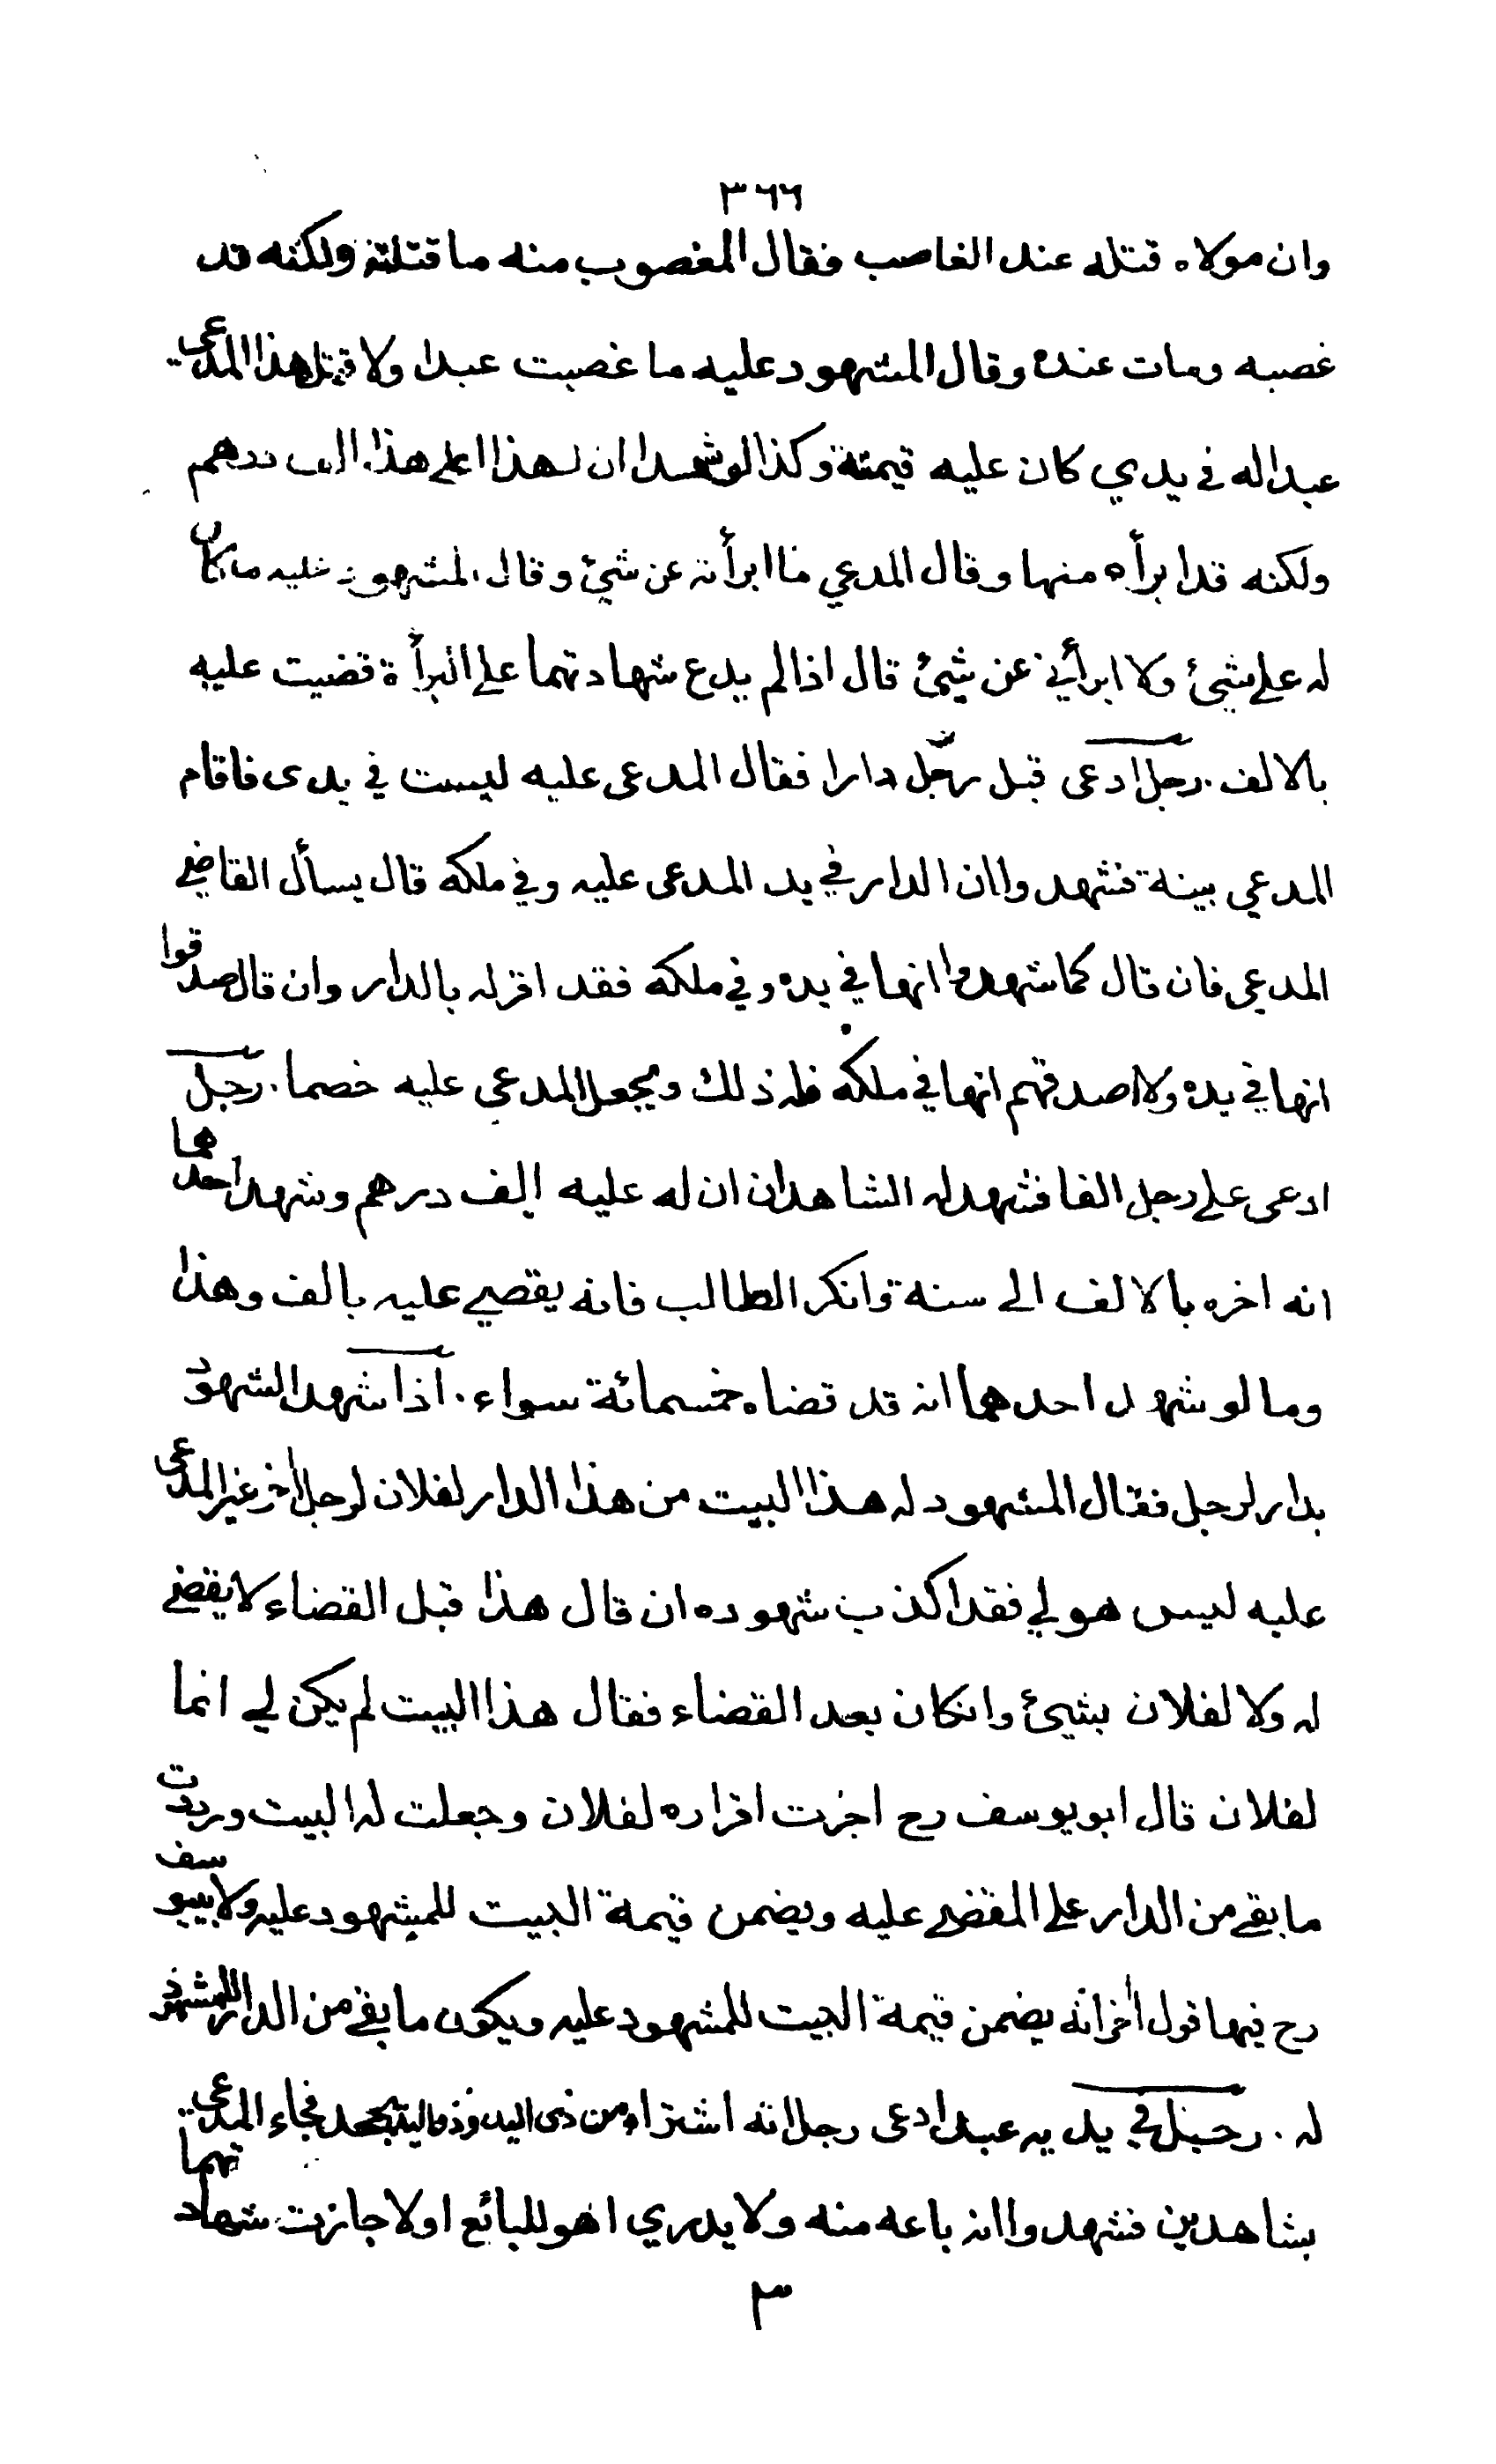 ٣٦٦
وان مولاه قتله عند الغاصب فقال المغصوب منه ما قتلته ولكنه قد
غصبه ومات عنده وقال المشهود عليه ما غصبت عبدا ولا قتل هذا المدعي
عبدا له في يدي كان عليه قيمته وكذا لو شهدا ان لهذا على هذا الف درهم
ولكنه قد ابرأه منها وقال المدعي ما ابرأته عن شيئ وقال المشهود عليه ما كان
له على شيئ ولا ابرأني عن شيئ قال اذا لم يدع شهادتهما على البرأة قضيت عليه
بالالف . رجل ادعى قبل رجل دارا فقال المدعى عليه ليست في يدى فاقام
المدعي بينة فشهدوا ان الدار في يد المدعى عليه وفي ملكه قال يسأل القاضي
المدعي فان قال كما شهدوا انها في يده وفي ملكه فقد اقر له بالدار وان قال صدقوا
انها في يده ولا اصدقهم انها في ملكه فله ذلك ويجعل المدعى عليه خصما . رجل
ادعى على رجل الفا فشهد له الشاهدان ان له عليه الف درهم وشهد احدهما
انه اخره بالالف الى سنة وانكر الطالب فانه يقضي عليه بالف وهذا
وما لو شهد احدهما انه قد قضاه خمسمائة سواء . اذا شهد الشهود
بدار لرجل فقال المشهود له هذا البيت من هذا الدار لفلان لرجل اخر غير المدعى
عليه ليس هو لي فقد اكذب شهوده ان قال هذا قبل القضاء لا يقضي
له ولا لفلان بشيئ وانكان بعد القضاء فقال هذا البيت لم يكن لي انما
لفلان قال ابو يوسف رح اجزت اقراره لفلان وجعلت له البيت ورددت
ما بقي من الدار على المقضي عليه ويضمن قيمة البيت للمشهود عليه ولابييوسف
رح فيها قول اخر انه يضمن قيمة البيت للمشهود عليه ويكون ما بقي من الدار للمشهود
له . رجل في يديه عبد ادعى رجل انه اشتراه من ذى اليد وذو اليد يجحد فجاء المدعي
بشاهدين فشهدوا انه باعه منه ولا يدري اهو للبائع اولا جازت شهادتهما
٣